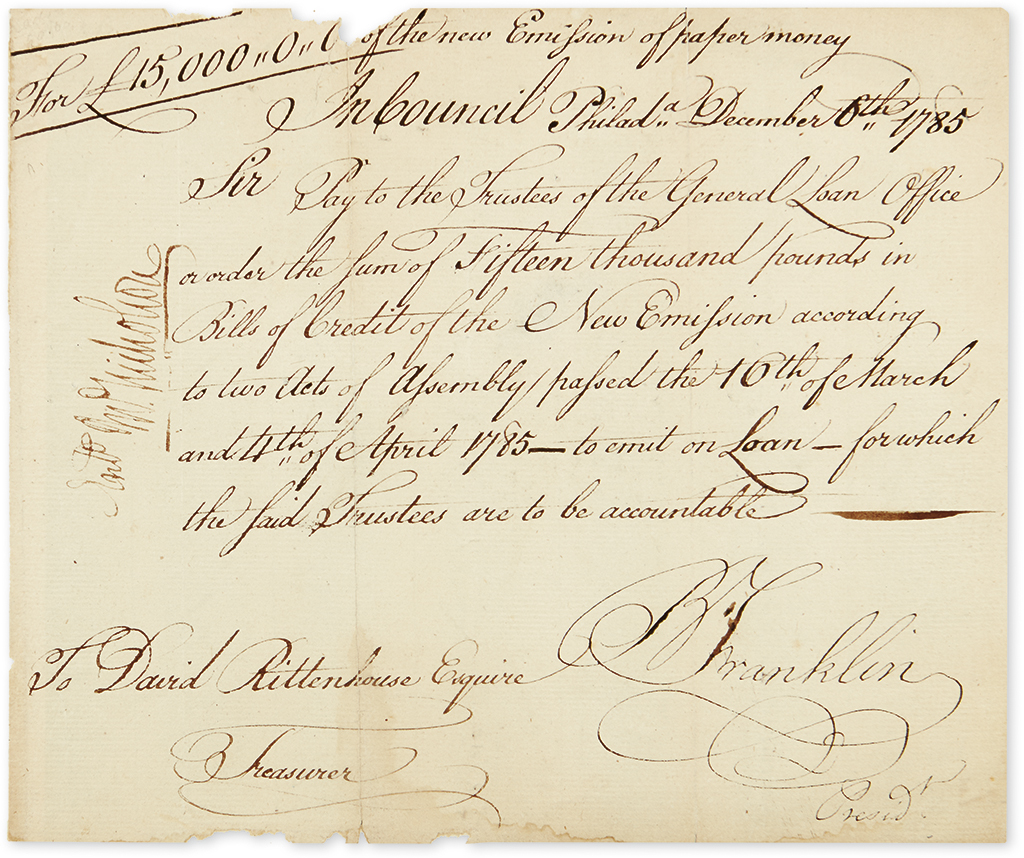 For £15,000„0„0 of the new Emission of paper money
In Council Philad.ª December 6th 1785
Sir Pay to the Trustees of the General Loan Office
or order the sum of Fifteen thousand pounds in
Bills of Credit of the New Emission according
to two Acts of Assembly passed the 16th of March
and 4th of April 1785 — to emit on Loan — for which
the said Trustees are to be accountable
B Franklin
Presidt
To David Rittenhouse Esquire
Treasurer
Jno Nicholson